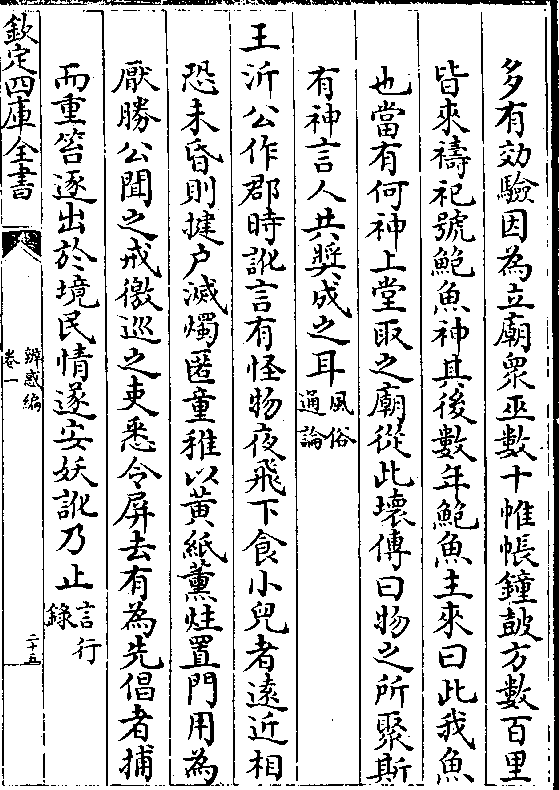 多有效驗因為立廟衆巫數十帷帳鐘鼓方數百里
皆來禱祀號鮑魚神其後數年鮑魚主來曰此我魚
也當有何神上堂取之廟從此壞傳曰物之所聚斯
有神言人共奬成之耳風俗
通論
王沂公作郡時訛言有怪物夜飛下食小兒者遠近相
恐未昏則揵户滅燭匿童稚以黄紙薰炷置門用為
厭勝公聞之戒徼巡之吏悉令屏去有為先倡者捕
而重笞逐出於境民情遂安妖訛乃止言行
錄
欽定四庫全書
辨惑編
卷一
二十五